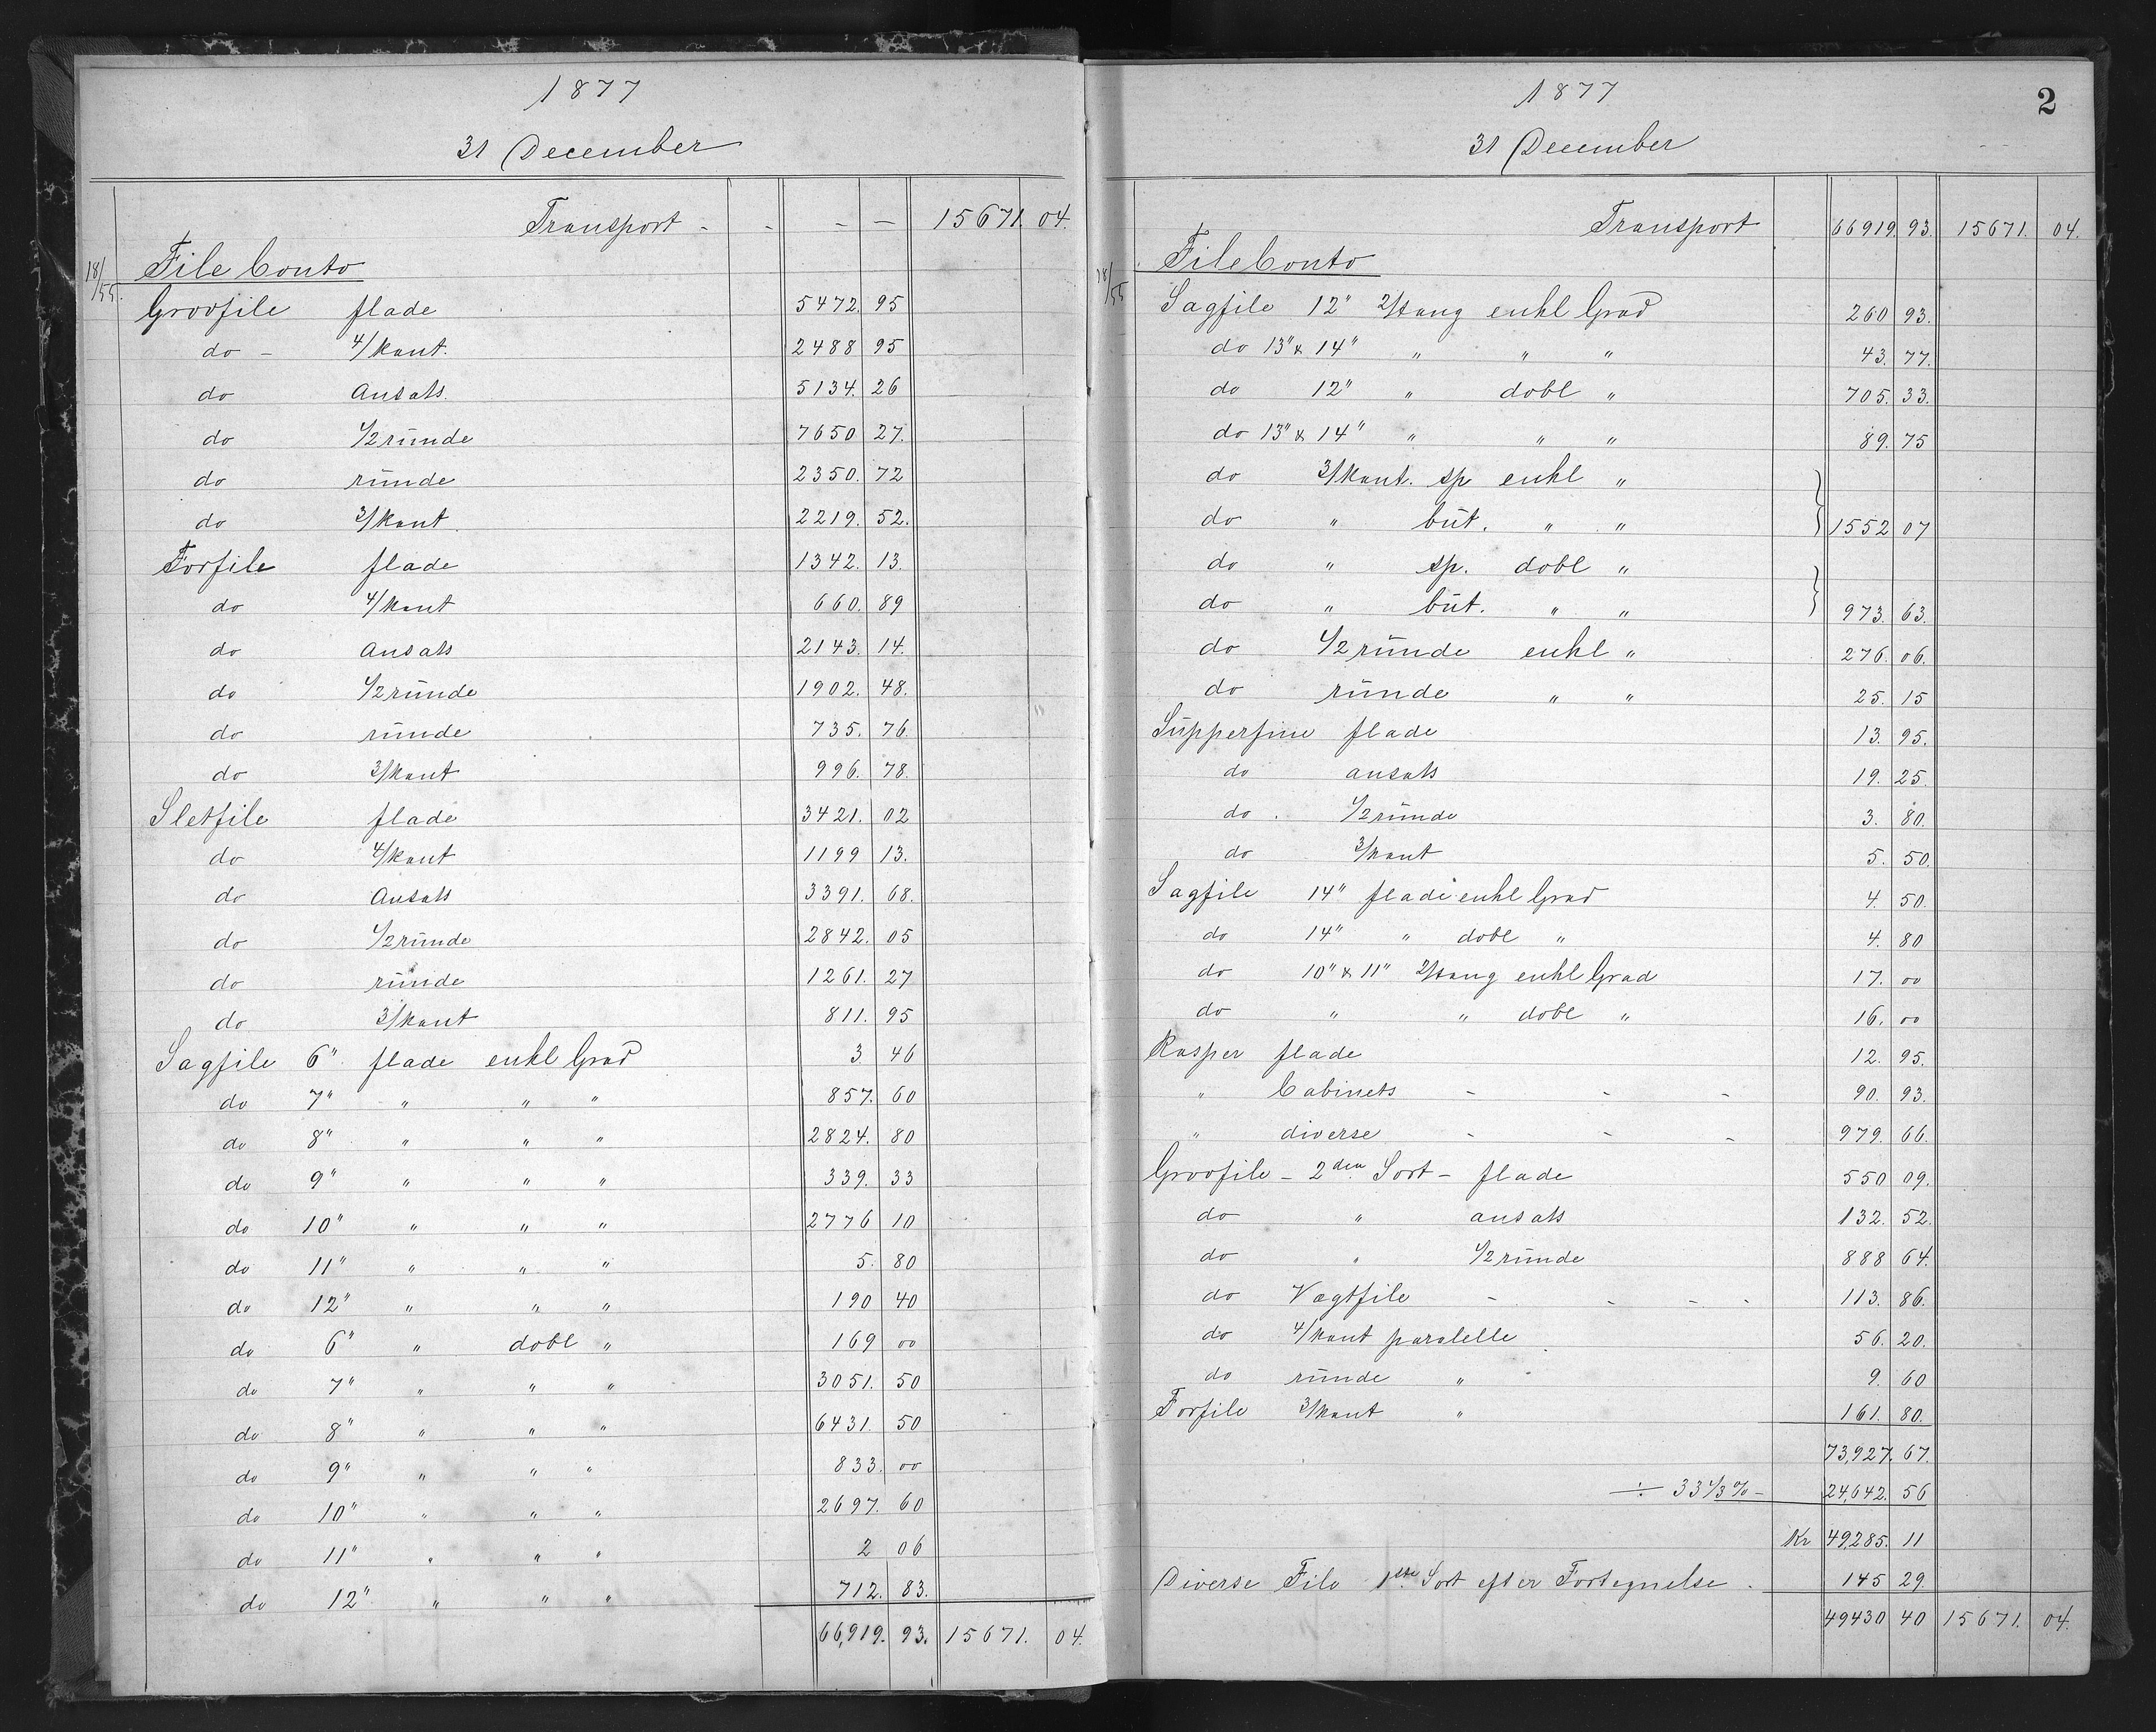 1877
31 December
Transport - - - - 15671. 04.
18/55. File Conto
Grovfile flade 5472. 95
do - 4/kant. 2488 95
do Ansats. 5134. 26
do 1/2 runde 7650 27.
do runde 2350. 72
do 3/kant. 2219. 52.
Forfile flade 1342. 13.
do 4/kant 660. 89
do Ansats 2143. 14.
do 1/2 runde 1902. 48.
do runde 735. 76.
do 3/kant 996. 78.
Sletfile flade 3421. 02
do 4/kant 1199 13.
do Ansats 3391. 68.
do 1/2 runde 2842. 05
do runde 1261. 27
do 3/kant 811. 95
Sagfile 6" flade enkl Grad 3 46
do 7" " " " 857. 60
do 8" " " " 2824. 80
do 9" " " " 339. 33
do 10" " " " 2776 10
do 11" " " " 5. 80
do 12" " " " 190 40
do 6" " dobl " 169 00
do 7" " " " 3051. 50
do 8" " " " 6431. 50
do 9" " " " 833. 00
do 10" " " " 2697. 60
do 11" " " " 2 06
do 12" " " " 712. 83.
66,919. 93. 15671. 04.
1877 2
31 December
Transport 66919. 93. 15671. 04.
18/55 File Conto
Sagfile 12" 2/tang enkl Grad 260 93.
do 13" & 14" " " " 43. 77.
do 12" " dobl " 705. 33.
do 13" & 14" " " " 89. 75
do 3/kant. sp enkl "
do " but. " " } 1552 07
do " sp. dobl "
do " but. " " } 973. 63.
do 1/2 runde enkl " 276. 06.
do runde " " 25. 15
Supperfine flade 13. 95.
do ansats 19. 25.
do . 1/2 runde 3. 80.
do 3/kant 5. 50.
Sagfile 14" flade enkl Grad 4. 50.
do 14" " dobl " 4. 80
do 10" & 11" 2/tang enkl Grad 17. 00
do " " dobl " 16. 00
Rasper flade 12. 95.
" Cabinets - - - 90. 93.
" diverse - - - 979. 66.
Grovfile - 2den Sort - flade 550 09.
do " ansats 132. 52.
do " 1/2 runde 888 64.
do Vægtfile - - - - 113. 86.
do 4/kant paralelle 56. 20.
do runde " 9. 60
Forfile 3/kant " 161. 80.
73,927. 67.
÷ 33 1/3 % - 24,642. 56
Kr 49,285. 11
Diverse File 1ste Sort efter Fortegnelse . 145 29.
49430 40 15671. 04.